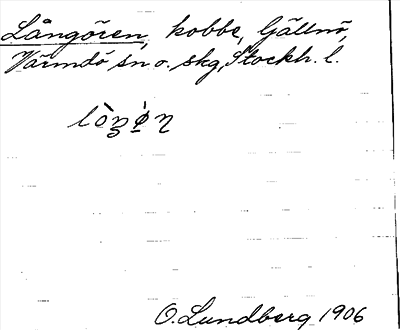 Långören, kobbe, Gällnö,
Värmdö sn o. skg, Stockh. l.
O. Lundberg 1906